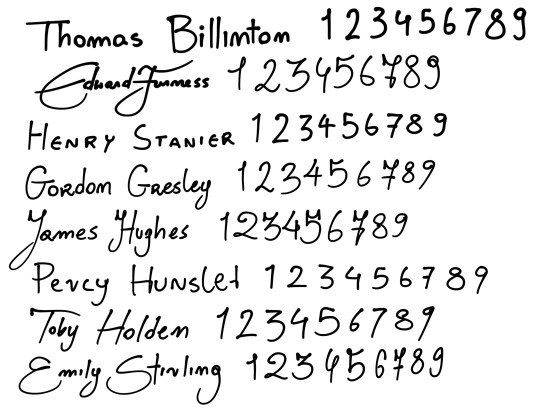 Thomas Billinton 123456789
Edward Furness 123456789
Henry Stanier 123456789
Gordon Gresley 123456789
James Hughes 123456789
Percy Hunslet 123456789
Toby Holden 123456789
Emily Stirling 123456789